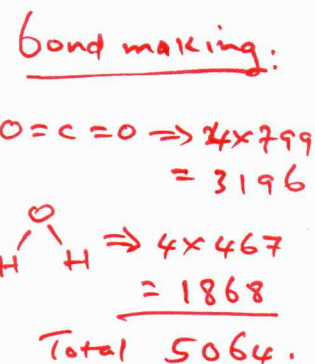 bond making:
O=C=O ⇒ 4×799
= 3196
O
H H ⇒ 4×467
= 1868
Total 5064.